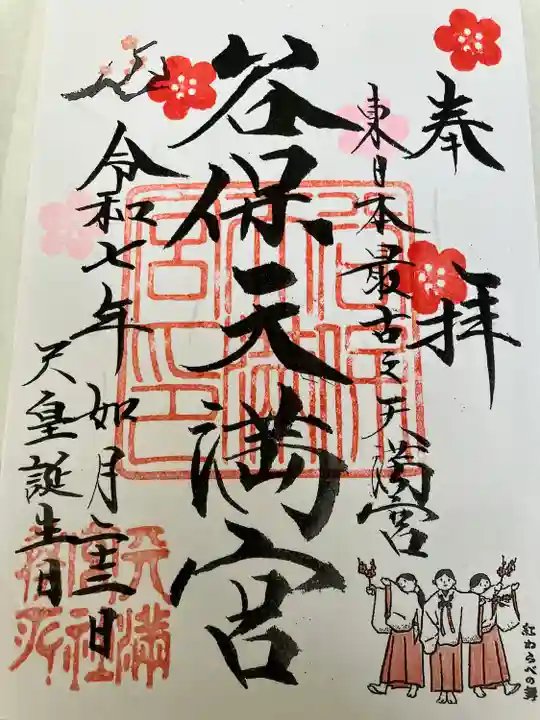 奉拝
東日本最古之天満宮
谷保天満宮
令和七年如月二十三日
天皇誕生日
紅わらべの舞